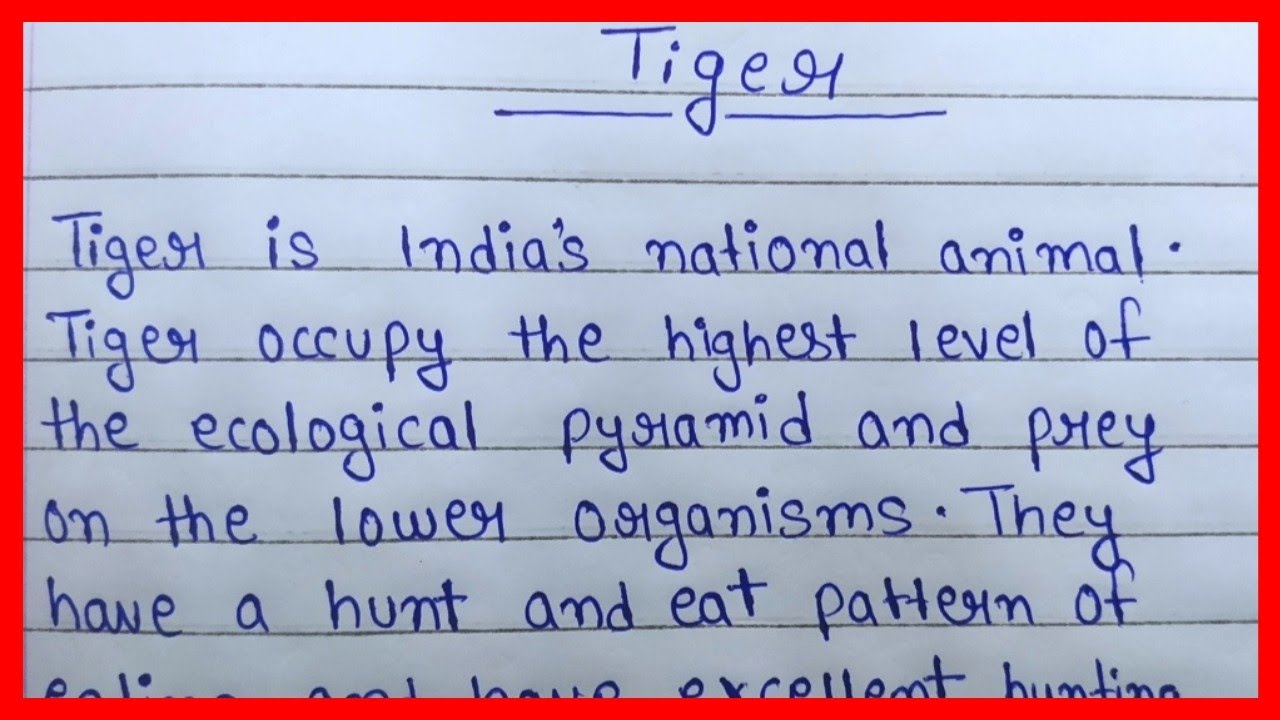 Tiger
Tiger is India's national animal.
Tiger occupy the highest level of
the ecological pyramid and prey
on the lower organisms. They
have a hunt and eat pattern of
and have excellent hunting